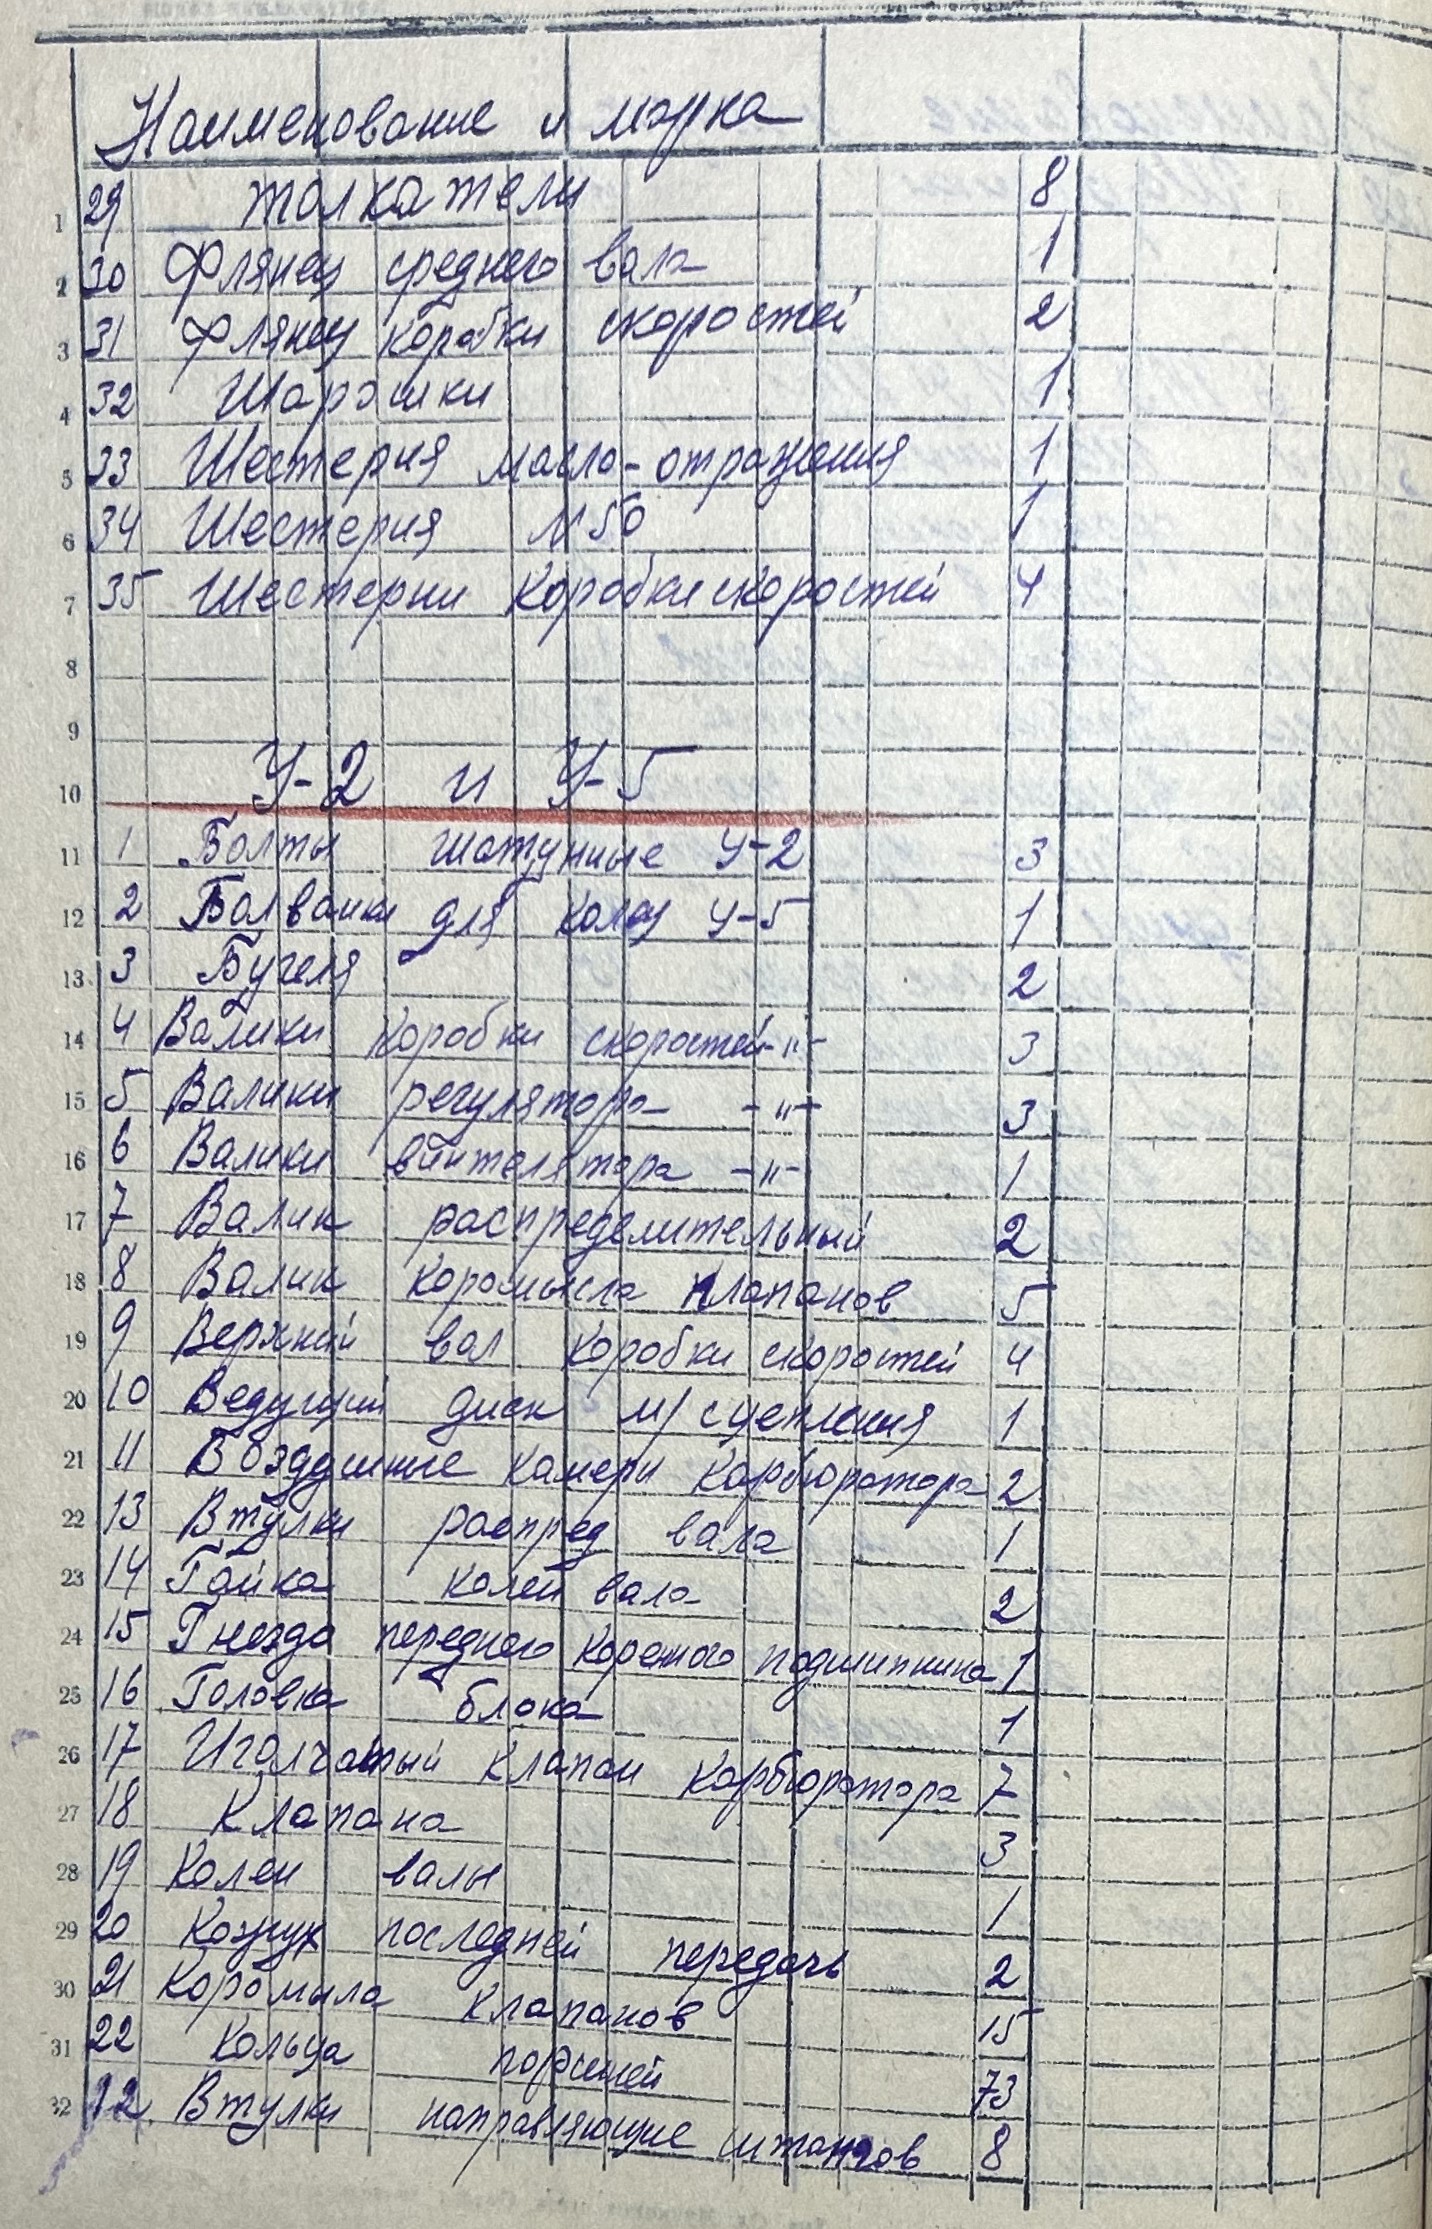 Наименование и марка
1 29 толкатели 8
2 30 Флянец среднего вала 1
3 31 Флянец коробки скоростей 2
4 32 Шарошки 1
5 33 Шестерня масло-отражения 1
6 34 Шестерня М50 1
7 35 Шестерни коробки скоростей 4
8
9
10 У-2 и У-5
11 1 Болты шатунные У-2 3
12 2 Болванки для колец У-5 1
13 3 Бугеля 2
14 4 Валики коробки скоростей -"- 3
15 5 Валики регулятора -"- 3
16 6 Валики винтелятора -"- 1
17 7 Валик распределительный 2
18 8 Валик коромысла клапанов 5
19 9 Верхний вал коробки скоростей 4
20 10 Ведущий диск м/сцепления 1
21 11 Воздушные камеры карбюратора 2
22 13 Втулки распред вала 1
23 14 Гайка колен вала 2
24 15 Гнезда переднего коренного подшипника 1
25 16 Головка блока 1
26 17 Иголчатый клапан карбюратора 7
27 18 Клапана 3
28 19 Колен валы 1
29 20 Кожух последней передачь 2
30 21 Коромыла клапанов 15
31 22 Кольца поршней 73
32 12. Втулки направляющие штангов 8